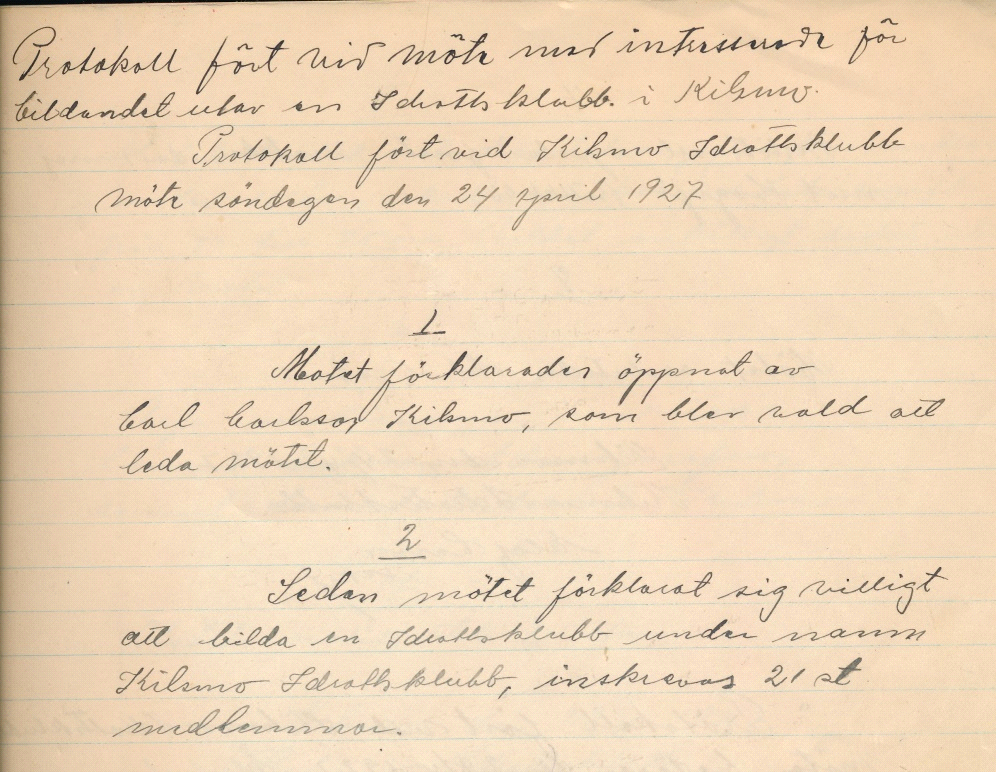 Protokoll fört vid möte med intresserade för
bildandet utav en Idrottsklubb. i Kilsmo.
Protokoll fört vid Kilsmo Idrottsklubb
möte söndagen den 24 april 1927
1
Motet förklarades öppnat av
Carl Carlsson, Kilsmo, som blev vald att
leda mötet.
2
Sedan mötet förklarat sig villigt
att bilda en Idrottsklubb under namn
Kilsmo Idrottsklubb, inskrevos 21 st
medlemmar.